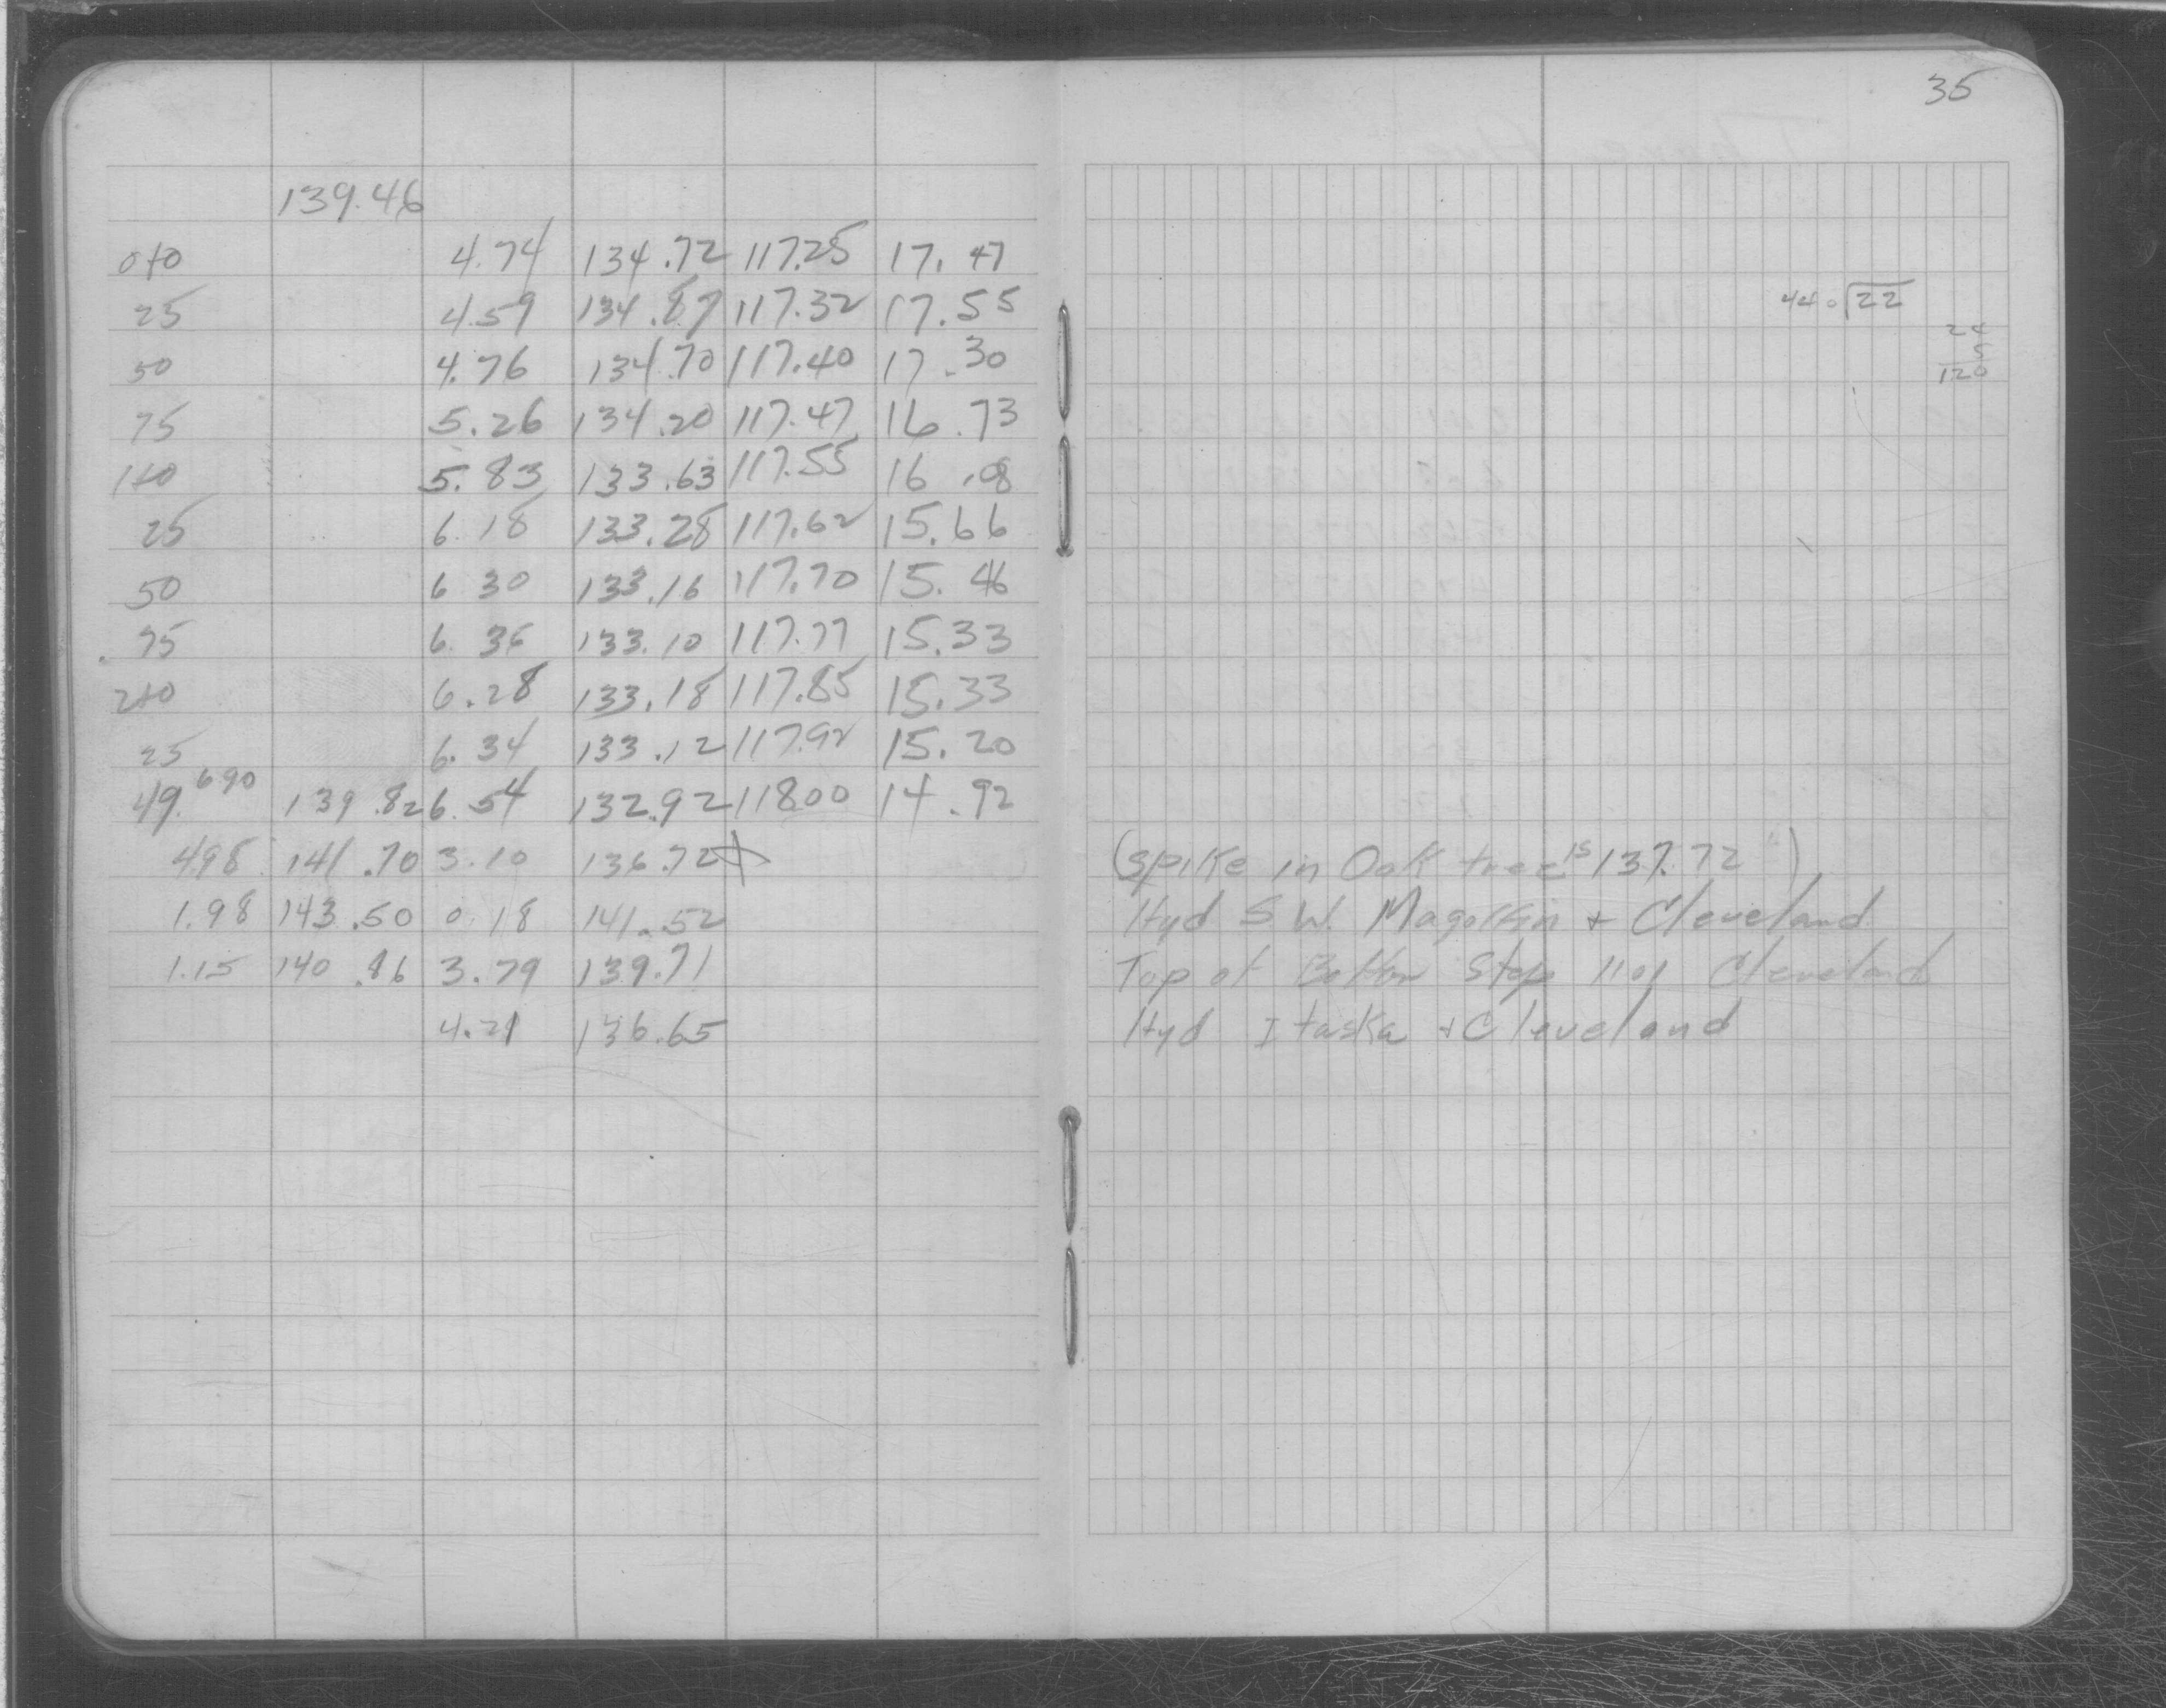 35
139.46
0+0 4.74 134.72 117.25 17.47
25 4.59 134.87 117.32 17.55
50 4.76 134.70 117.40 17.30
75 5.26 134.20 117.47 16.73
1+0 5.83 133.63 117.55 16.08
25 6.18 133.28 117.62 15.66
50 6 30 133.16 117.70 15.46
75 6.36 133.10 117.77 15.33
2+0 6.28 133.18 117.85 15.33
25 6.34 133.12 117.92 15.20
49.690 139.82 6.54 132.92 118.00 14.92
4.98 141.70 3.10 136.72 (spike in Oak tree is 137.72)
1.98 143.50 0.18 141.52 Hyd S.W. Magoffin + Cleveland
1.15 140.86 3.79 139.71 Top of Bottom Step Cleveland
4.21 136.65 Hyd Itaska + Cleveland
44.0 22
24
5
120